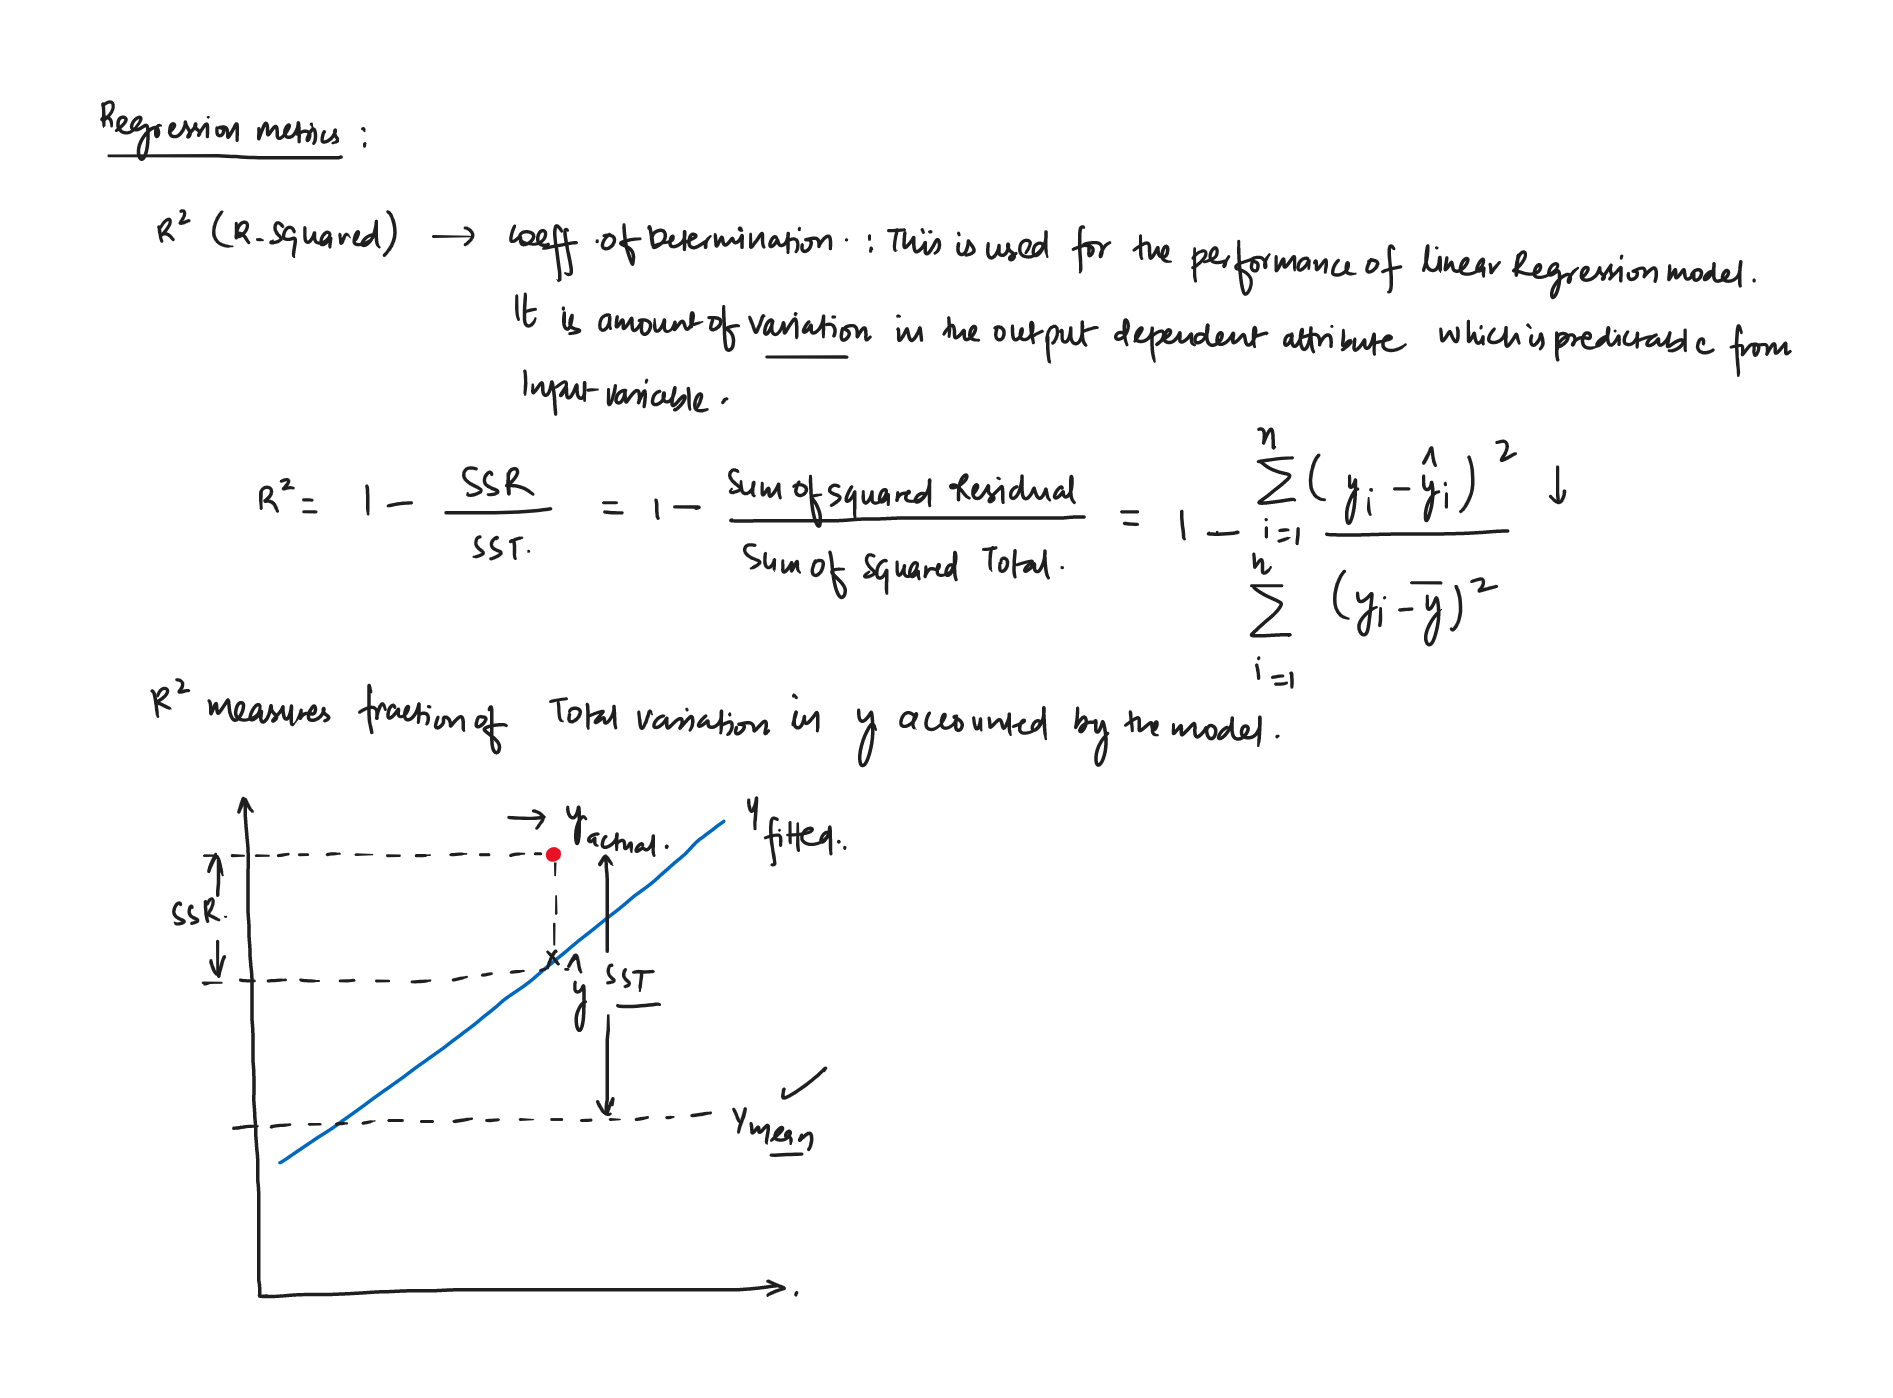 Regression metrics :
R² (R-squared) → Coeff. of Determination. : This is used for the performance of Linear Regression model.
It is amount of variation in the output dependent attribute which is predictable from
Input variable.
R² = 1 - SSR / SST. = 1 - Sum of squared Residual / Sum of squared Total. = 1 - n Σ i=1 (yi - ŷi)² ↓ / n Σ i=1 (yi - ȳ)²
R² measures fraction of Total variation in y accounted by the model.
→ y actual.
y fitted.
SSR.
ŷ
SST
y mean ✓